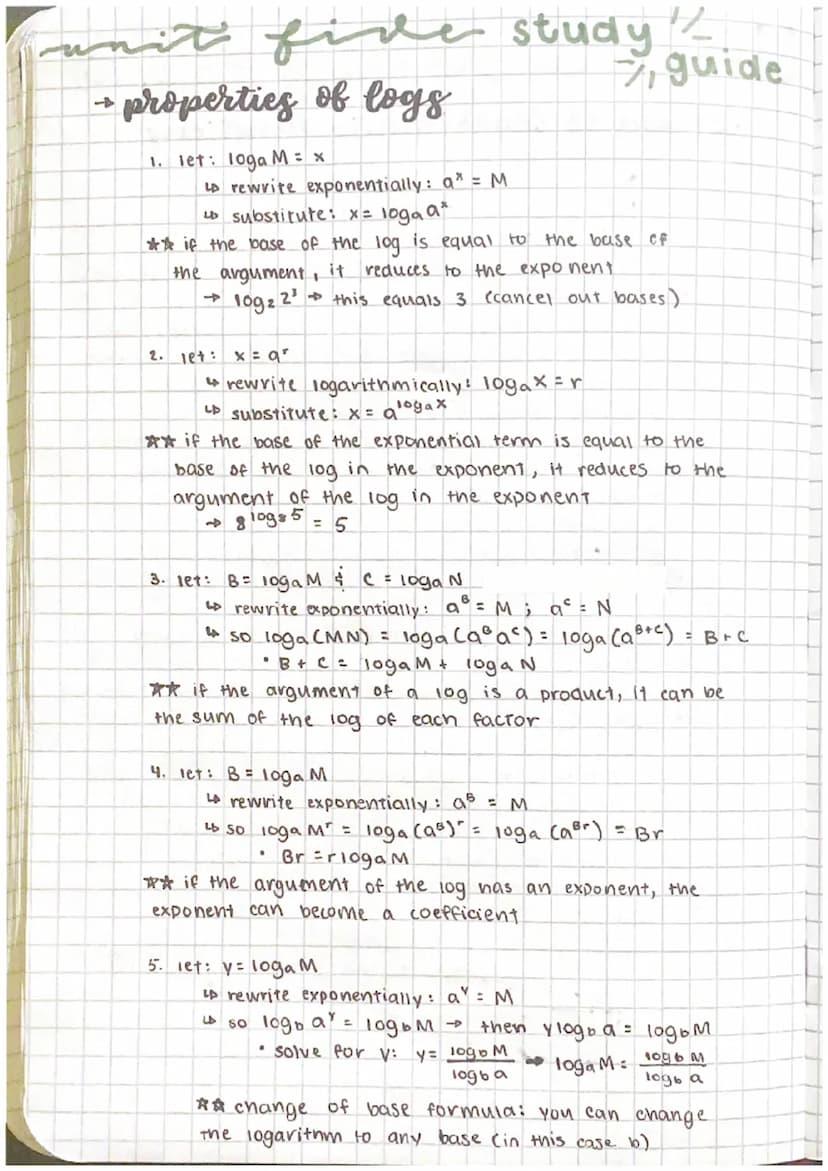 unit five study guide
→ properties of logs
1. let: logₐM = x
↳ rewrite exponentially: aˣ = M
↳ substitute: x = logₐaˣ
★★ if the base of the log is equal to the base of
the argument, it reduces to the exponent
→ log₂2³ → this equals 3 (cancel out bases)
2. let: x = aʳ
↳ rewrite logarithmically: logₐx = r
↳ substitute: x = a^(logₐx)
★★ if the base of the exponential term is equal to the
base of the log in the exponent, it reduces to the
argument of the log in the exponent
→ 8^(log₈5) = 5
3. let: B = logₐM & C = logₐN
↳ rewrite exponentially: aᴮ = M ; aᶜ = N
↳ so logₐ(MN) = logₐ(aᴮaᶜ) = logₐ(aᴮ⁺ᶜ) = B + C
• B + C = logₐM + logₐN
★★ if the argument of a log is a product, it can be
the sum of the log of each factor
4. let: B = logₐM
↳ rewrite exponentially: aᴮ = M
↳ so logₐMʳ = logₐ(aᴮ)ʳ = logₐ(aᴮʳ) = Br
• Br = rlogₐM
★★ if the argument of the log has an exponent, the
exponent can become a coefficient
5. let: y = logₐM
↳ rewrite exponentially: aʸ = M
↳ so log_b aʸ = log_b M → then ylog_b a = log_b M
• solve for y: y = log_b M / log_b a → logₐM = log_b M / log_b a
★★ change of base formula: you can change
the logarithm to any base (in this case b)